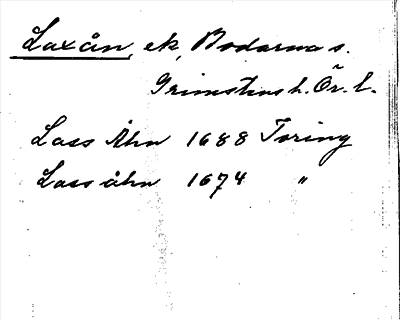 Laxån, ek, Bodarna s.
Grimstens h. Ör. l.
Lass Åhn 1688 Toring
Lass åhn 1674 "